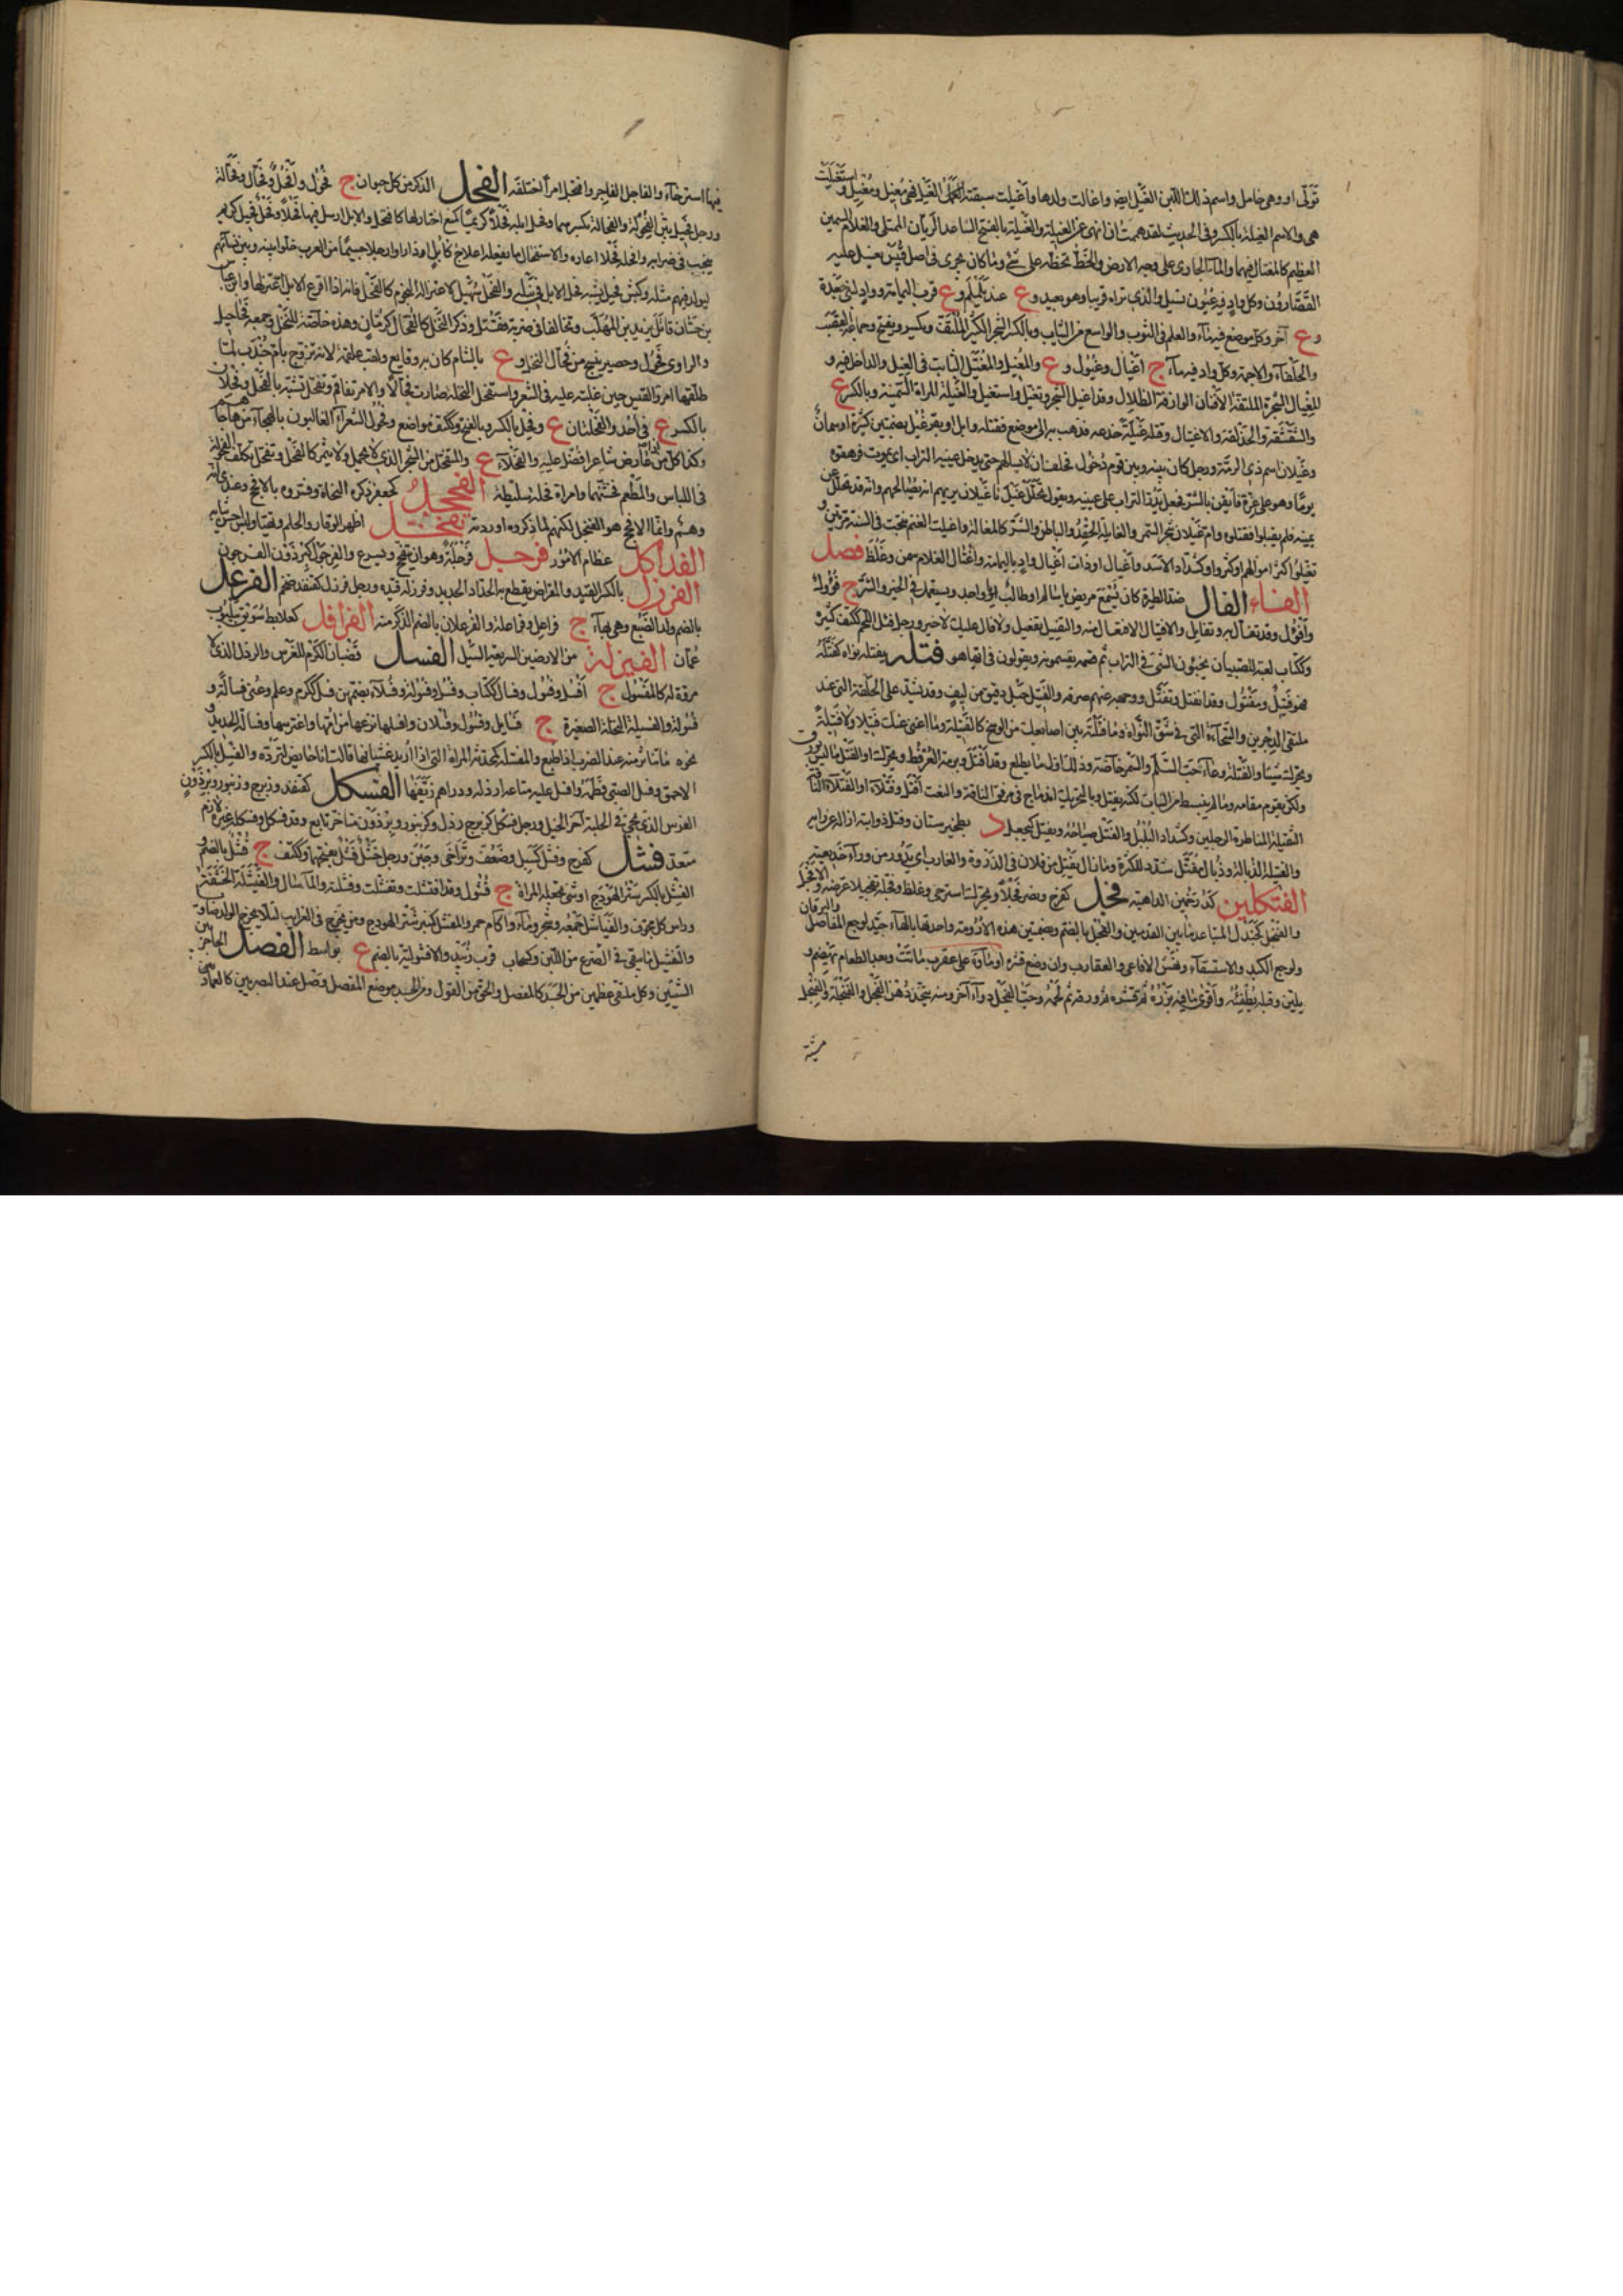 تؤتى او وهي حامل واسم ذلك اللبن الغيل ايضا واغالت ولدها واغيلت سقته الغيل فهي مغيل ومغيل واستغيلت
هي والاسم الغيلة بالكسر وفي الحديث لقد هممت ان انهى عن الغيلة والغيلة بالفتح الساعد الريان الممتلئ والغلام السمين
العظيم كالمغتال فيهما والماء الجاري على وجه الارض والخط تخطه على شئ وما كان يجري في اصل قصب يغسل عليه
القصارون وكل واد فيه عيون تسيل والذي تراه قريبا وهو بعيد وع عند يلملم وع قرب اليمامة وواد لبني جعدة
وع آخر وكل موضع فيه ماء والعلم في الثوب والواسع من الثياب وبالكسر الشجر الكثير الملتف ويكسر ويفتح وجماعة القصب
والحلفاء والاجمة وكل واد فيه ماء ج اغيال وغيول وع والمغيل والمغتيل الثابت في الغيل والداخل فيه و
المغيال الشجرة الملتفة الافنان الوارفة الظلال وقد اغيل الشجر وتغيل واستغيل والغيلة المراة السمينة وبالكسر ع
والشقشقة والخديعة والاغتيال وقتله غيلة خدعه فذهب به الى موضع فقتله وابل او بقر غيل بضمتين كثيرة او سمان
وغيلان اسم ذي الرمة ورجل كان بينه وبين قوم ذحول فحلف ان لا يسالمهم حتى يدخل عينيه التراب اي يموت فرهقوه
يوما وهو على غرة فايقن بالشر فجعل يذر التراب على عينيه ويقول تحلل غيل يا غيلان يريهم انه يصالحهم وانه قد تحلل من
يمينه فلم يقبلوا فقتلوه وام غيلان شجر السمر والغائلة الحقد الباطن والشر كالمغالة واغيلت الغنم نتجت في السنة مرتين و
تغيلوا كثر اموالهم او كثروا وكشداد الاسد واغيال او ذات اغيال واد باليمامة واغتال الغلام سمن وغلظ فصل
الفاء الفال ضد الطيرة كان يسمع مريض يا سالم او طالب يا واجد ويستعمل في الخير والشر ج فؤول
وافؤل وقد تفاءل به وتفأل والافتيال الافتعال منه والتفييل تفعيل ولا فال عليك لا خير ورجل فئل اللحم ككتف كثيره
وككتاب لعبة للصبيان يخبؤون الشئ في التراب ثم يقسمونه ويقولون في ايها هو فتله يفتله لواه كفتله
فهو فتيل ومفتول وقد انفتل وتفتل ووجهه عنهم صرفه والفتيل حبل دقيق من ليف وقد يشد على الحلقة التي عند
ملتقى الدجرين والسحاءة التي في شق النواة وما فتلته بين اصابعك من الوسخ كالفتيلة وما اغنى عنك فتيلا ولا فتلة
ويحرك شيئا والفتلة وعاء حب السلم والسمر خاصة وذلك اول ما يطلع وقد افتل وبرمة العرفط ويحرك او الفتل ما ليس بورق
ولكن يقوم مقامه وما لم ينبسط من النبات لكنه يفتل وبالتحريك اندماج في مرفق الناقة والنعت افتل وفتلاء او الفتلاء الناقة
الثقيلة المتاطرة الرجلين وكشداد البلبل والفتل صياحه ويفتل كيجعل د بطخيرستان وفتل ذوابته ازاله عن رايه
والفتيلة الذبالة وذبال مفتل شدد للكثرة وما زال يفتل من فلان في الذروة والغارب اي يدور من وراء خديعته
الفتكلين كدرخمين الداهية فجل كفرح ونصر فجلا ويحرك استرخى وغلظ وفجله تفجيلا عرضه والافجل
والفنجل كجندل المتباعد ما بين القدمين والفجل بالضم وبضمتين هذه الارومة واحدتها بالهاء جيد لوجع المفاصل واليرقان
ولوجع الكبد والاستسقاء ونهش الافاعي والعقارب وان وضع قشره او ماؤه على عقرب ماتت وبعد الطعام يهضم و
يلين وقبله يطفئه واقوى ما فيه بزره ثم قشره ثم ورقه ثم لحمه وحب الفجل دواء آخر ومنه يتخذ دهن الفجل والفنجلة والفنجلى
مشية
فيها استرخاء والفاجل القامر وافتجل امرا اختلقه الفحل الذكر من كل حيوان ج فحول وافحل وفحال وفحالة
ورجل فحيل بين الفحولة والفحالة بكسرهما وفحل ابله فحلا كريما كمنع اختار لها كافتحل والابل ارسل فيها فحلا وفحل فحيل كريم
منجب في ضرابه وافحله فحلا اعاره والاستفحال ما يفعله اعلاج كابل اذا راوا رجلا جسيما من العرب خلوا بينه وبين نسائهم
ليولد فيهم مثله وكبش فحيل يشبه فحل الابل في نبله والفحل سهيل لاعتزاله النجوم كالفحل فانه اذا قرع الابل اعتزلها وابن عياش
بن حسان قاتل يزيد بن المهلب وتخالفا في ضربة فقتل وذكر النخل كالفحال كرمان وهذه خاصة للنخل وجمعه فحاحيل
والراوي ج فحول وحصير ينسج من فحال النخل وع بالشام كان به وقايع ولقب علقمة لانه تزوج بام جندب لما
طلقها امرؤ القيس حين غلبته عليه في الشعر واستفحل النخلة صارت فحالا والامر تفاقم وتفحل تشبه بالفحل وفحلان
بالكسر ع في احد والفحلتان ع وفحل بالكسر وبالفتح وككتف مواضع وفحول الشعراء الغالبون بالهجاء من هاجاهم
وكذا كل من عارض شاعرا فضل عليه والفحلاء ع والمتفحل من الشجر الذي لا يحمل ولا يثمر كالفحل وتفحل تكلف الفحولة
في اللباس والمطعم فخشنهما وامراة فحلة سليطة الفحجل كجعفر ذكره النحاة وفسروه بالافحج وعندي انه
وهم وانما الافحج هو الفنجل لكنهم لما ذكروه اوردته تفختل اظهر الوقار والحلم وتهيا ولبس احسن ثيابه
الفداكل عظام الامور فرجل فرجلة وهو ان يتفحج ويسرع والفرجول كبرذون الفرجون
الفرزل بالكسر القيد والمقراض يقطع به الحداد الحديد وفرزله قيده ورجل فرزل كقنفذ ضخم الفرعل
بالضم ولد الضبع وهي بهاء ج فراعل وفراعلة والفرعلان بالضم الذكر منه الفرافل كعلابط سويق ينبوت
عمان الفيزلة من الارضين السريعة السيل الفسل قضبان الكرم للغرس والرذل الذي لا
مروة له كالمفسول ج افسل وفسول وفسال ككتاب وفسل وفسولة وفسلاء بضمهن فسل ككرم وعلم وعني فسالة و
فسولة والفسيلة النخلة الصغيرة ج فسايل وفسيل وفسلان وافسلها نزعها من امها واغترسها وفسالة الحديد و
نحوه ما تناثر منه عند الضرب اذا طبع والمفسلة كمحدثة المراة التي اذا اريد غشيانها قالت انا حائض لترده والفسل بالكسر
الاحمق وفسل الصبي فطمه وافسل عليه متاعه ارذله ودراهم زيفها الفسكل كقنفذ وزبرج وزنبور وبرذون
الفرس الذي يجئ في الحلبة آخر الخيل ورجل فسكل كزبرج رذل وكزنبور وبرذون متاخر تابع وقد فسكل وفسكله غيره لازم
متعد فشل كفرح وفشل كسل وضعف وتراخى وجبن ورجل خشل فشل بفتحهما وككتف ج فشل بالضم و
الفشل بالكسر ستر الهودج او شئ تجعله المراة ج فشول وقد افتشلت وتفشلت وفشلته والماء سال والفيشلة الحشفة
وراس كل محوق والفياشل جمعه وشجر وماء وآكام حمر والمفشل كمنبر ستر الهودج ومن يتزوج في الغرائب لئلا يخرج الولد ضاويا
والتفشيل ما يبقى في الضرع من اللبن وكسحاب قرب زبيد والافشولية بالضم ع بواسط الفصل الحاجز بين
الشيئين وكل ملتقى عظمين من الجسد كالمفصل والحق من القول ومن الجسد موضع المفصل وفصل عند البصريين كالعماد